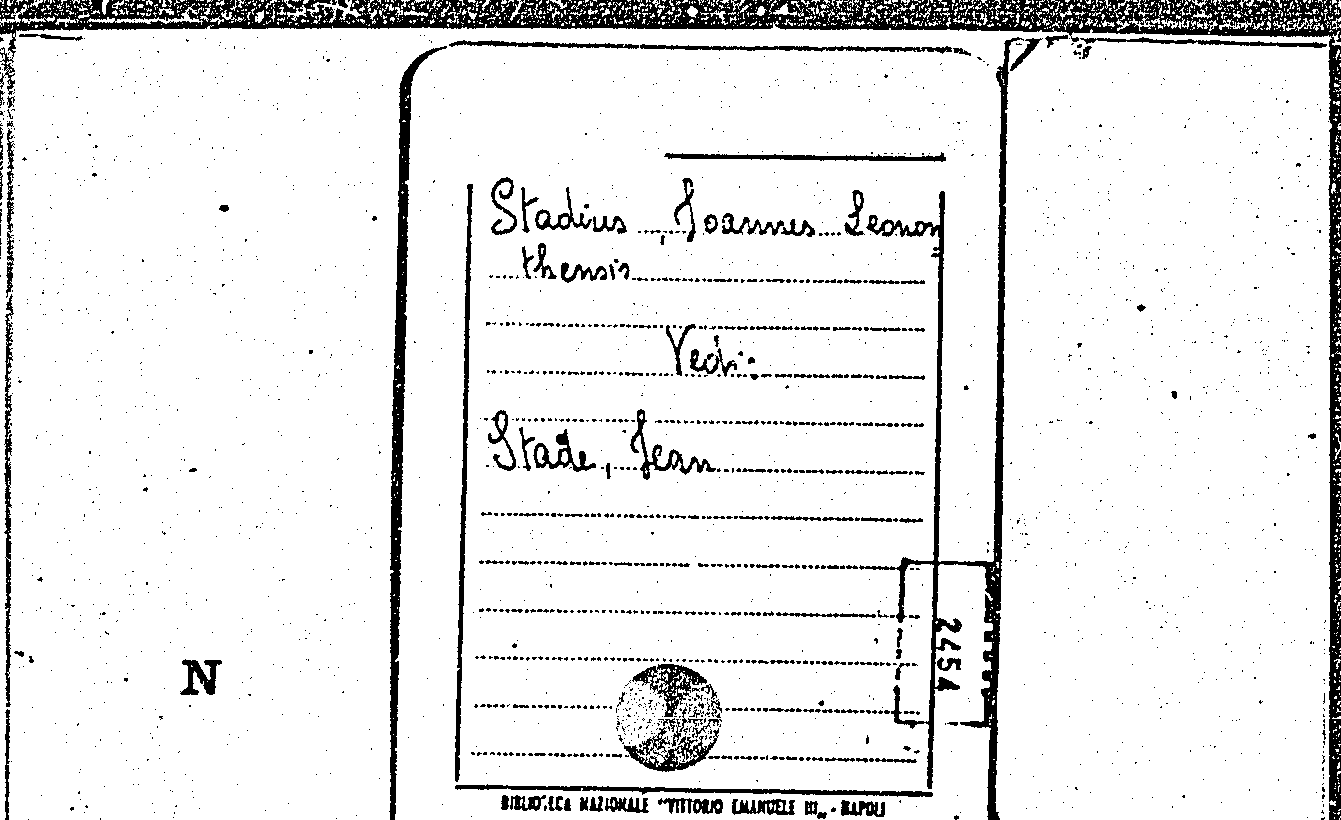 Stadius, Joannes Leonon=
thensis
Vedi:
Stade, Jean
2454
N
BIBLIOTECA NAZIONALE "VITTORIO EMANUELE III„ - NAPOLI